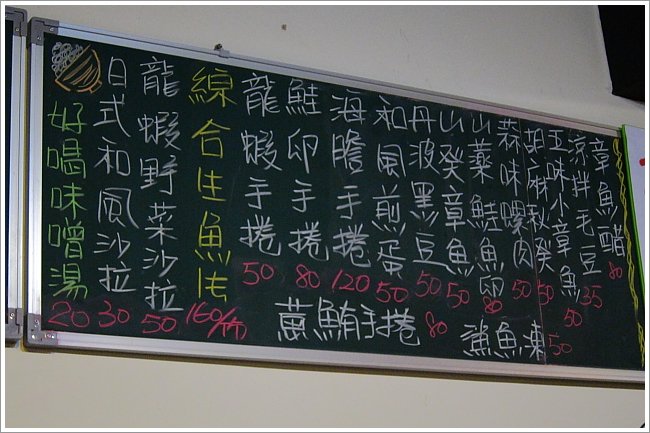 章魚醋 80
涼拌毛豆 35
五味小章魚 50
胡麻秋葵 50
蒜味螺肉 50
山藥鮭魚卵 80
山癸章魚 50
丹波黑豆 50
和風煎蛋 50
海膽手捲 120
鮭卵手捲 80
龍蝦手捲 50
綜合生魚片 160/份
龍蝦野菜沙拉 50
日式和風沙拉 30
好喝味噌湯 20
蔥鮪手捲 80
鯊魚凍 50